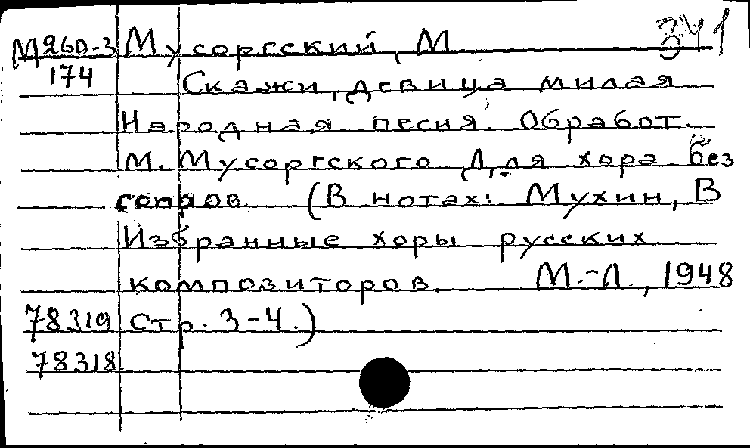 М260-3 Мусоргский, М 341
174 Скажи, девица милая
Народная песня. Обработ.
М. Мусоргского Для хора без
сопров. (В нотах: Мухин, В
Избранные хоры русских
композиторов. М.-Л., 1948
78319 Стр. 3-4.)
78318